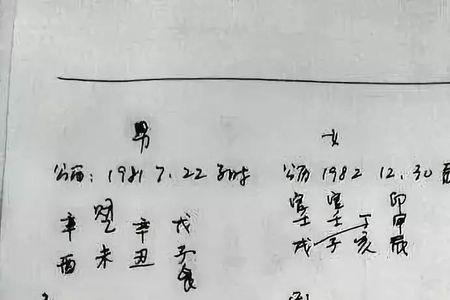 男 女
公历：1981 7.22 子时 公历 1982 12.30
官 官 印
辛 辛 戊 壬 壬 丁 甲
酉 未 丑 子 戌 子 亥 辰
食